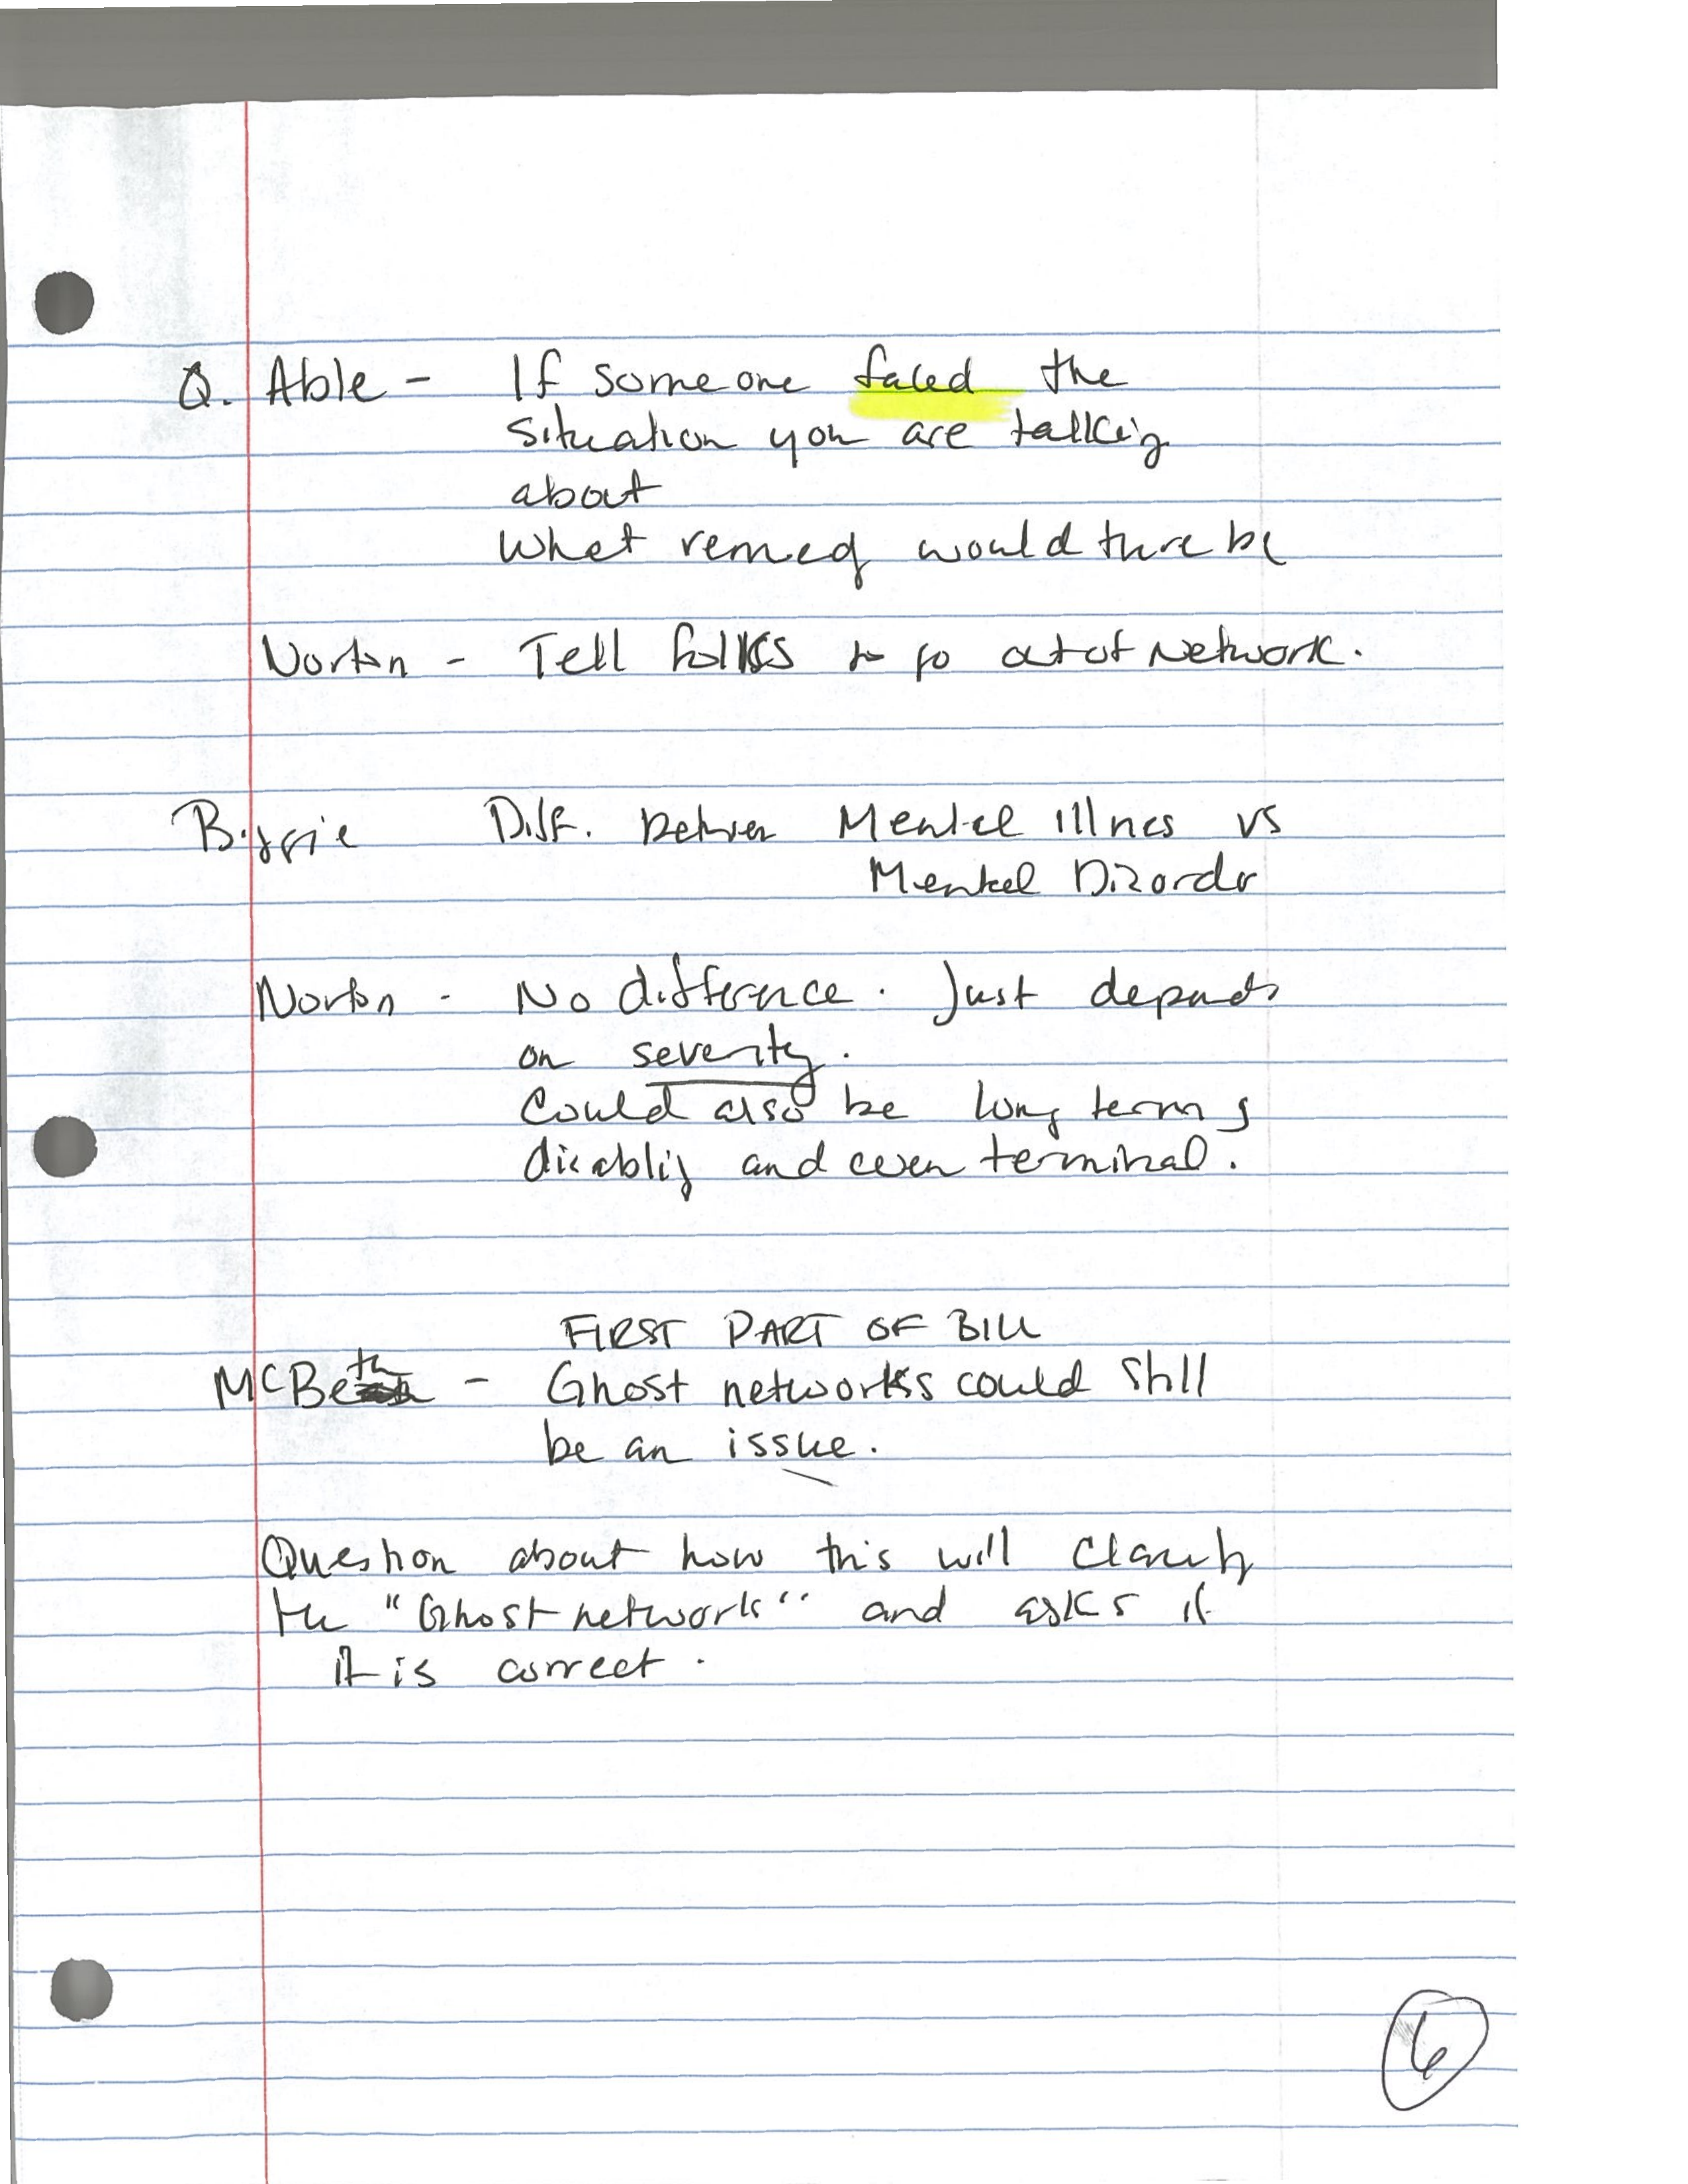 Q. Able - If someone faced the
situation you are talking
about
What remedy would there be
Norton - Tell folks to go out of Network.
Biggie Diff. between Mental Illness vs
Mental Dizorder
Norton - No difference. Just depends
on severity.
Could also be long term
disability and even terminal.
FIRST PART OF BILL
McBeth - Ghost networks could still
be an issue.
Question about how this will clarify
the "Ghost network" and asks if
it is correct.
6